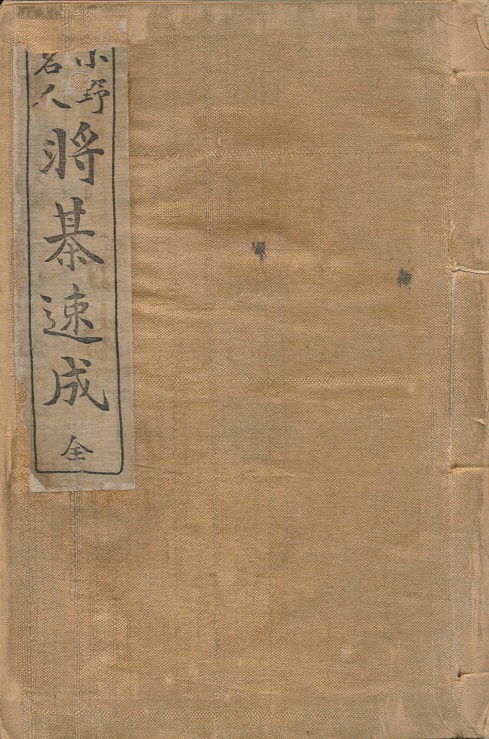 小野
名人
将棊速成
全